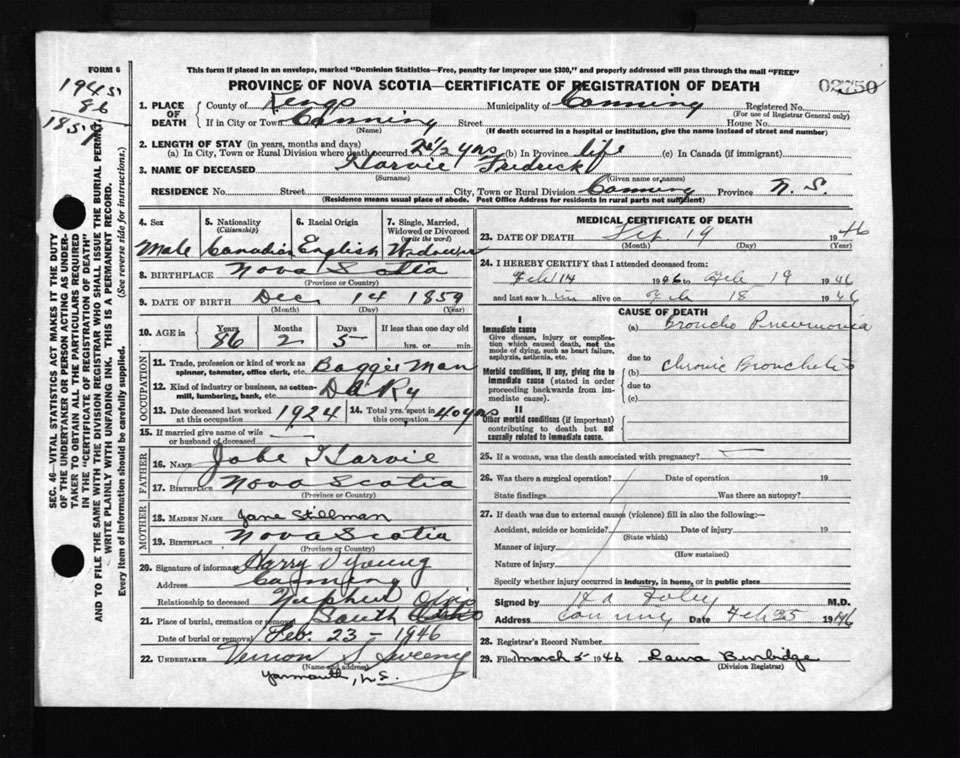 FORM 6
This form if placed in an envelope, marked "Dominion Statistics—Free, penalty for improper use $300," and properly addressed will pass through the mail "FREE"
1945
86
1859
PROVINCE OF NOVA SCOTIA—CERTIFICATE OF REGISTRATION OF DEATH
02750
1. PLACE OF DEATH
County of Kings Municipality of Canning Registered No.
(For use of Registrar General only)
If in City or Town Canning Street House No.
(Name) (If death occurred in a hospital or institution, give the name instead of street and number)
2. LENGTH OF STAY (in years, months and days)
(a) In City, Town or Rural Division where death occurred 2 1/2 yrs (b) In Province life (c) In Canada (if immigrant)
3. NAME OF DECEASED Harvie Fredrick
(Surname) (Given name or names)
RESIDENCE No. Street City, Town or Rural Division Canning Province N. S.
(Residence means usual place of abode. Post Office Address for residents in rural parts not sufficient)
4. Sex
Male
5. Nationality
(Citizenship)
Canadian
6. Racial Origin
English
7. Single, Married, Widowed or Divorced
(write the word)
Widower
8. BIRTHPLACE Nova Scotia
(Province or Country)
9. DATE OF BIRTH Dec 14 1859
(Month) (Day) (Year)
10. AGE in
Years Months Days If less than one day old
86 2 5 hrs. or min.
OCCUPATION
11. Trade, profession or kind of work as Baggie Man
spinner, teamster, office clerk, etc.
12. Kind of industry or business, as cotton-
mill, lumbering, bank, etc. D A Ry
13. Date deceased last worked
at this occupation 1924
14. Total yrs. spent in
this occupation 40 yrs
15. If married give name of wife
or husband of deceased
FATHER
16. NAME Jobe Harvie
17. BIRTHPLACE Nova Scotia
(Province or Country)
MOTHER
18. MAIDEN NAME Jane Stillman
19. BIRTHPLACE Nova Scotia
(Province or Country)
20. Signature of informant Harry Young
Address Canning
Relationship to deceased Nephew
21. Place of burial, cremation or removal South Ohio
Date of burial or removal Feb. 23 - 1946
22. UNDERTAKER Vernon S Sweeny
(Name and address)
Yarmouth, N.S.
MEDICAL CERTIFICATE OF DEATH
23. DATE OF DEATH 19 1946
(Month) (Day) (Year)
24. I HEREBY CERTIFY that I attended deceased from:
Feb 14 1946 to Feb 19 1946
and last saw him alive on Feb 18 1946
I
Immediate cause
Give disease, injury or complication which caused death, not the mode of dying, such as heart failure, asphyxia, asthenia, etc.
Morbid conditions, if any, giving rise to immediate cause (stated in order proceeding backwards from immediate cause).
II
Other morbid conditions (if important) contributing to death but not causally related to immediate cause.
CAUSE OF DEATH
(a) Broncho Pneumonia
due to
(b) Chronic Bronchitis
due to
(c)
25. If a woman, was the death associated with pregnancy?
26. Was there a surgical operation? Date of operation 19
State findings Was there an autopsy?
27. If death was due to external causes (violence) fill in also the following:—
Accident, suicide or homicide? Date of injury 19
(State which)
Manner of injury
(How sustained)
Nature of injury
Specify whether injury occurred in industry, in home, or in public place
Signed by Foley M.D.
Address Canning Date Feb 25 1946
28. Registrar's Record Number
29. Filed March 5 - 1946 Laura Burbidge
(Division Registrar)
SEC. 46—VITAL STATISTICS ACT MAKES IT THE DUTY
OF THE UNDERTAKER OR PERSON ACTING AS UNDER-
TAKER TO OBTAIN ALL THE PARTICULARS REQUIRED
IN THE "CERTIFICATE OF REGISTRATION OF DEATH"
AND TO FILE THE SAME WITH THE DIVISION REGISTRAR WHO SHALL ISSUE THE BURIAL PERMIT.
WRITE PLAINLY WITH UNFADING INK. THIS IS A PERMANENT RECORD.
Every item of information should be carefully supplied. (See reverse side for instructions.)